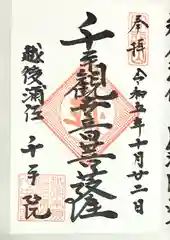 奉拝
令和五年十月廿二日
千手観世音菩薩
越後浦佐
千手院